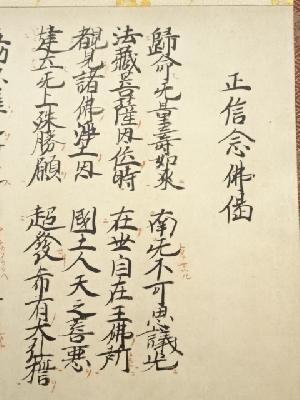 正信念佛偈
歸命无量壽如來 南无不可思議光
法藏菩薩因位時 在世自在王佛所
覩見諸佛淨土因 國土人天之善惡
建立无上殊勝願 超發希有大弘誓